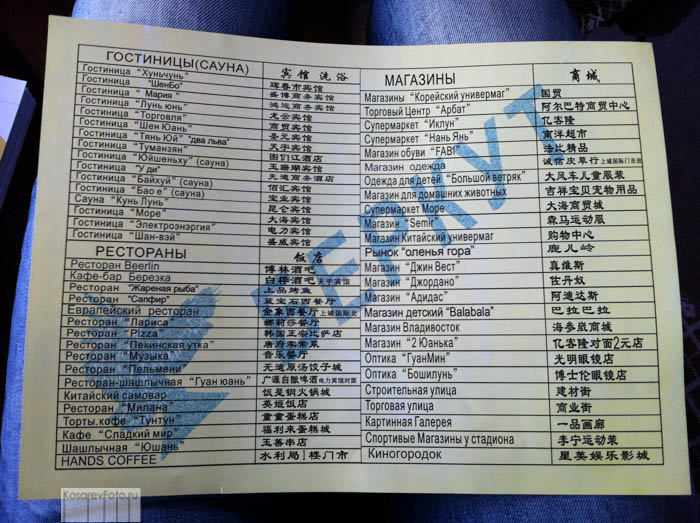 ГОСТИНИЦЫ(САУНА) 宾馆 洗浴
Гостиница "Хуньчунь" 珲春市宾馆
Гостиница "ШенБо" 盛博商务宾馆
Гостиница " Мария " 鸿运商务宾馆
Гостиница "Лунь юнь" 龙云宾馆
Гостиница "Торговля" 商贸宾馆
Гостиница " Шен Юань" 圣元宾馆
Гостиница "Тянь Юй" "два льва" 天宇宾馆
Гостиница "Туманзян" 图们江酒店
Гостиница "Юйшеньху" (сауна) 玉珊瑚宾馆
Гостиница "У ди" 无迪商务酒店
Гостиница "Байхуй" (сауна) 佰汇宾馆
Гостиница "Бао е" (сауна) 宝业宾馆
Сауна "Кунь Лунь" 昆仑宾馆
Гостиница "Море" 大海宾馆
Гостиница "Электроэнэргия" 电力宾馆
Гостиница "Шан-вэй" 盛威宾馆
РЕСТОРАНЫ 饭店
Ресторан Beerlin 博林酒吧
Кафе-бар Березка 白桦酒吧 天宇宾馆
Ресторан "Жареная рыба" 上品烤鱼
Ресторан "Сапфир" 蓝宝石西餐厅
Европейский ресторан 金象西餐厅 上城国际北
Ресторан "Лариса" 娜莉莎餐厅
Ресторан "Pizza" 韩国正安比萨店
Ресторан "Пекинская утка" 唐府家常菜
Ресторан "Музыка" 音乐餐厅
Ресторан "Пельмени" 无迪原汤饺子城
Ресторан-шашлычная "Гуан юань" 广源自酿啤酒 电力宾馆对面
Китайский самовар 饭是钢火锅城
Ресторан "Милана" 英姬饭店
Торты.кофе "Тунтун" 童童蛋糕店
Кафе "Сладкий мир" 福利来蛋糕城
Шашлычная "Юшань" 玉善串店
HANDS COFFEE 水利局1楼门市
МАГАЗИНЫ 商城
Магазины "Корейский универмаг" 国贸
Торговый Центр "Арбат" 阿尔巴特商贸中心
Супермаркет "Иклун" 亿客隆
Супермаркет "Нань Янь" 南洋超市
Магазин обуви "FABI" 法比精品
Магазин одежда 诚信皮草行 上城国际门市房
Одежда для детей "Большой ветряк" 大风车儿童服装
Магазин для домашних животных 吉祥宝贝宠物用品
Супермаркет Море 大海商贸城
Магазин "Semir" 森马运动服
Магазин Китайский универмаг 购物中心
Рынок "оленья гора" 鹿儿岭
Магазин "Джин Вест" 真维斯
Магазин "Джордано" 佐丹奴
Магазин "Адидас" 阿迪达斯
Магазин детский "Balabala" 巴拉巴拉
Магазин Владивосток 海参崴商城
Магазин "2 Юанька" 亿客隆对面2元店
Оптика "ГуанМин" 光明眼镜店
Оптика "Бошилунь" 博士伦眼镜店
Строительная улица 建材街
Торговая улица 商业街
Картинная Галерея 一品画廊
Спортивные Магазины у стадиона 李宁运动装
Киногородок 星美娱乐影城
БЕРКУТ
KosarevFoto.ru